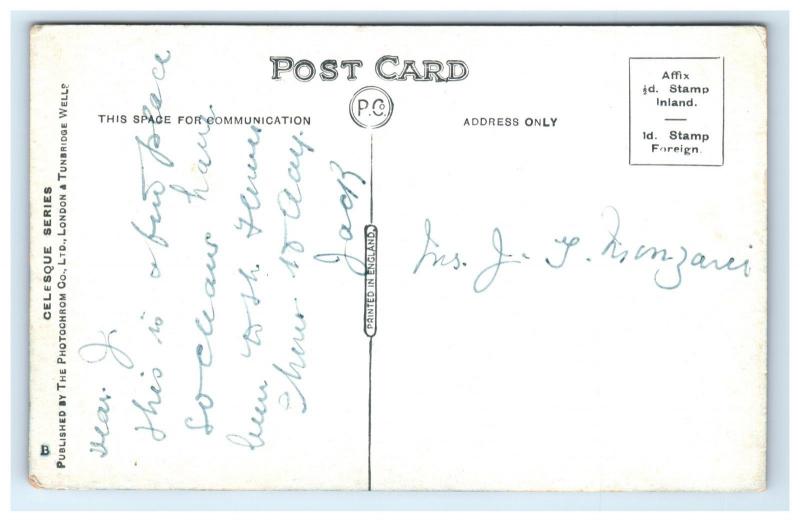 POST CARD
P.Co.
THIS SPACE FOR COMMUNICATION
ADDRESS ONLY
Affix
½d. Stamp
Inland.
1d. Stamp
Foreign.
CELESQUE SERIES
PUBLISHED BY THE PHOTOCHROM CO., LTD., LONDON & TUNBRIDGE WELLS
B
PRINTED IN ENGLAND
Dear. J.
this is a fine place
so clean have
been to the
here to day.
Jack
Mrs. J. T.